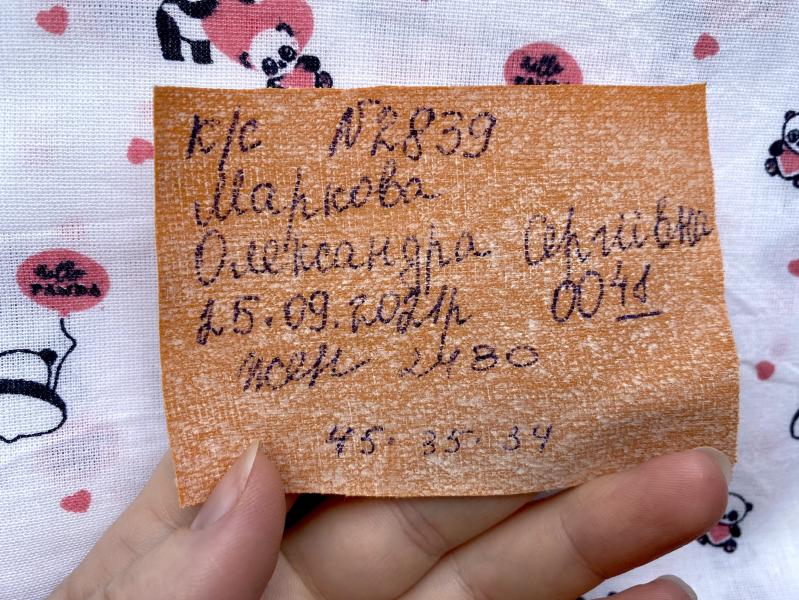 hello
к/с №2839
Маркова
Олександра Сергіївна
25.09.2021р 00 41
hello PANDA
жен 2480
45. 35. 34